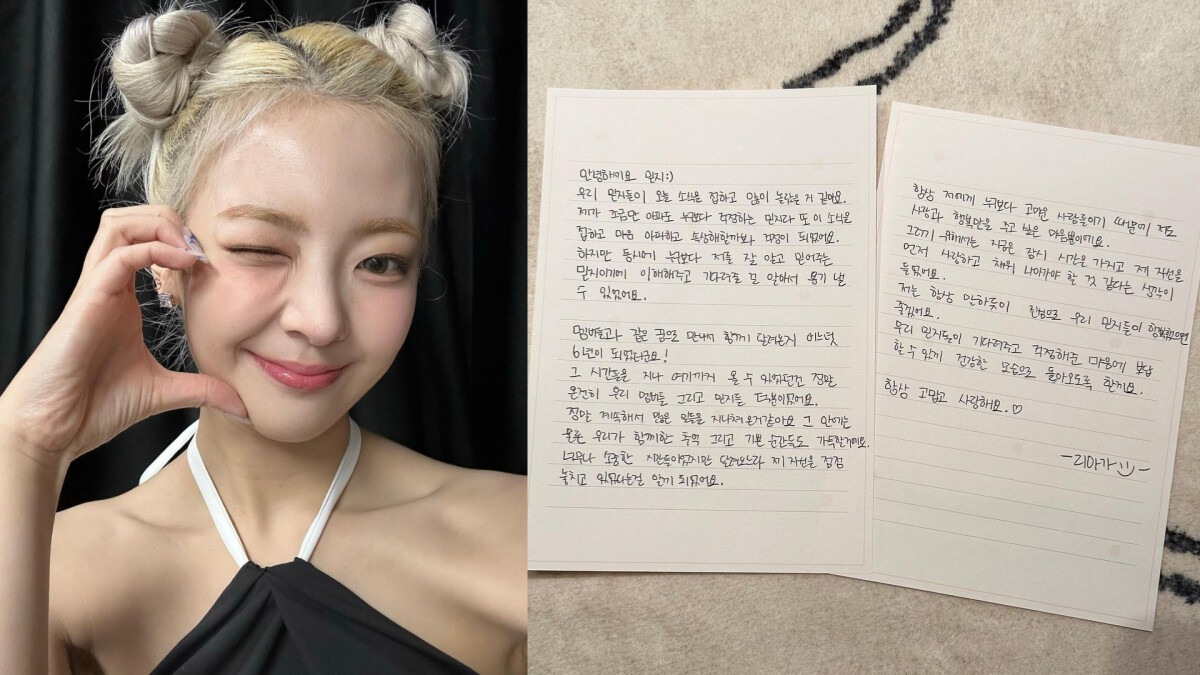 안녕하세요 믿지:)
우리 믿지들이 오늘 소식을 접하고 많이 놀랐을 거 같아요.
제가 조금만 아파도 누구보다 걱정하는 믿지라 또 이 소식을
접하고 마음 아파하고 속상해할까봐 걱정이 되었어요.
하지만 동시에 누구보다 저를 잘 알고 믿어주는
믿지이기에 이해해주고 기다려줄 걸 알아서 용기 낼
수 있었어요.
멤버들과 같은 꿈으로 만나서 함께 달려온지 어느덧
6년이 되었더라구요!
그 시간들을 지나 여기까지 올 수 있었던건 정말
온전히 우리 멤버들 그리고 믿지들 덕분이었어요.
정말 계속해서 많은 일들을 지나쳐온거같아요 그 안에는
물론 우리가 함께한 추억 그리고 기쁜 순간들도 가득할거예요.
너무나 소중한 시간들이었지만 달려오느라 제 자신을 점점
놓치고 있었다는걸 알게 되었어요.
항상 저에게 누구보다 고마운 사람들이기 때문에 저도
사랑과 행복만을 주고 싶은 마음뿐이에요.
그러기 위해서는 지금은 잠시 시간을 가지고 제 자신을
먼저 사랑하고 채워 나아가야 할 것 같다는 생각이
들었어요.
저는 항상 말하듯이 진심으로 우리 믿지들이 행복했으면
좋겠어요.
우리 믿지들이 기다려주고 걱정해준 마음에 보답
할 수 있게 건강한 모습으로 돌아오도록 할게요.
항상 고맙고 사랑해요.♡
-리아가 :)-